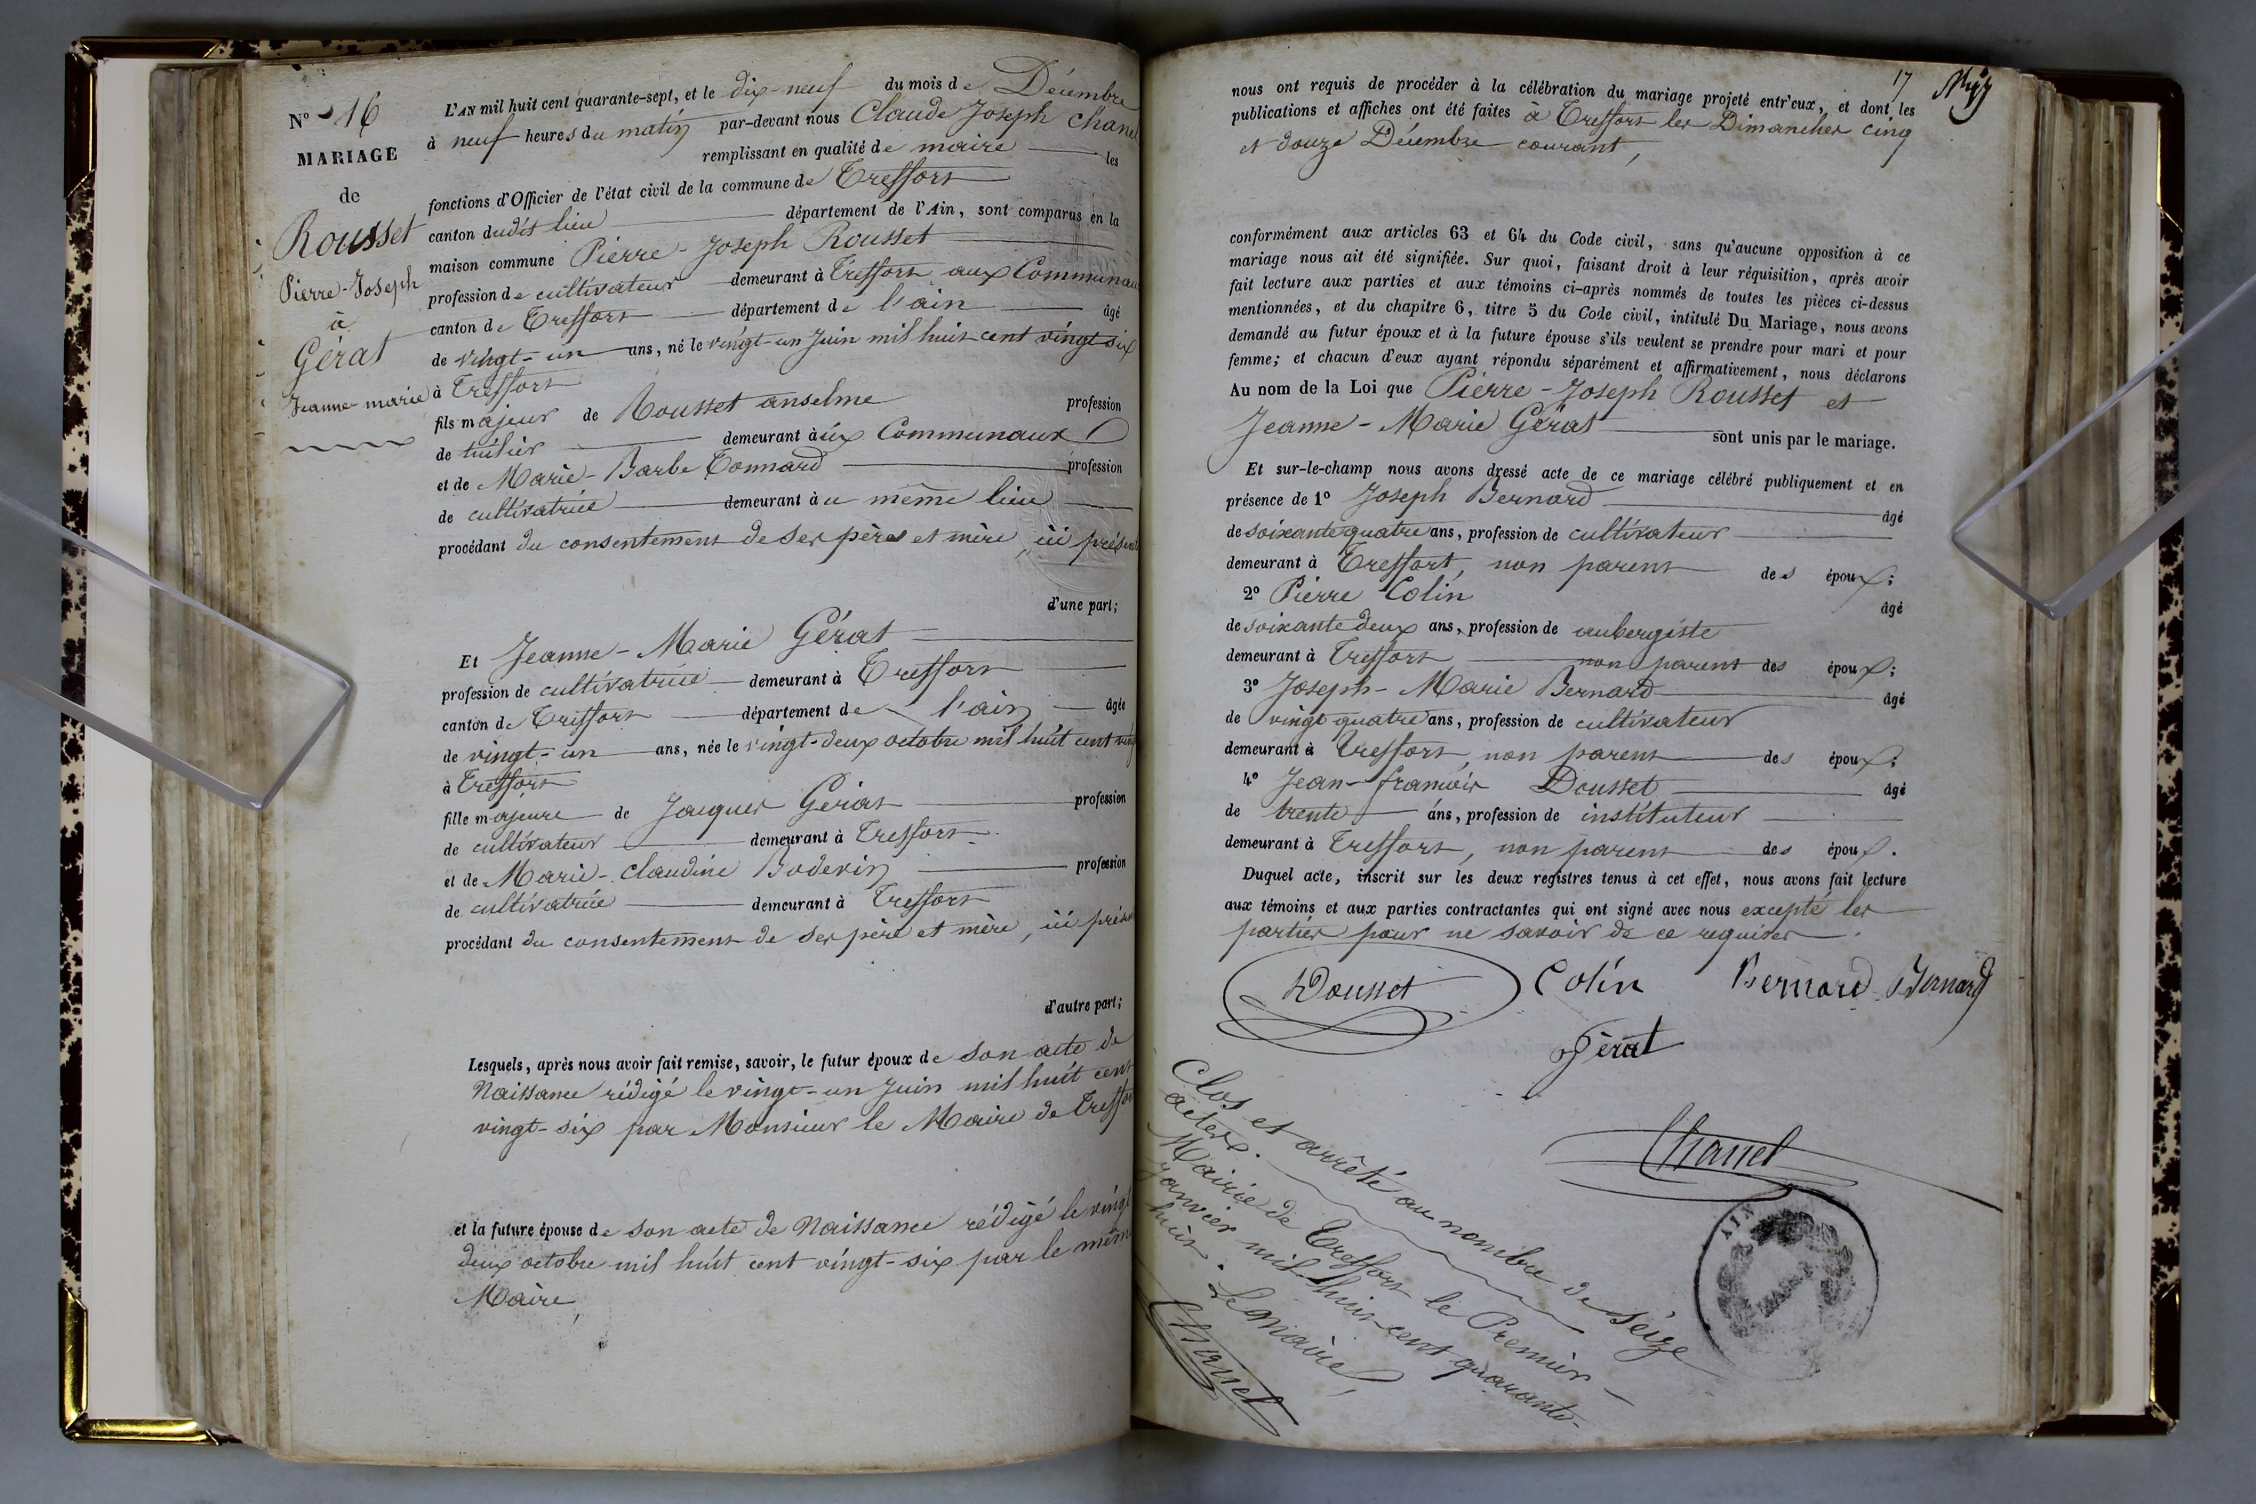 N.º 16
MARIAGE
de
Rousset
Pierre-Joseph
à
Gérat
Jeanne-marie
L'AN mil huit cent quarante-sept, et le dix-neuf du mois de Décembre
à neuf heures du matin par-devant nous Claude Joseph Chanel
remplissant en qualité de maire les
fonctions d'Officier de l'état civil de la commune de Treffort
canton dudit lieu département de l'Ain, sont comparus en la
maison commune Pierre-Joseph Rousset
profession de cultivateur demeurant à Treffort aux Communaux
canton de Treffort département de l'ain âgé
de vingt-un ans, né le vingt-un Juin mil huit cent vingt six
à Treffort
fils majeur de Rousset anselme profession
de tuilier demeurant aux Communaux
et de Marie-Barbe Tonnard profession
de cultivatrice demeurant au même lieu
procédant du consentement de ses pères et mère, ici présents
d'une part;
Et Jeanne-Marie Gérat
profession de cultivatrice demeurant à Treffort
canton de Treffort département de l'ain âgée
de vingt-un ans, née le vingt-deux octobre mil huit cent vingt
à Treffort
fille majeure de Jacques Gérat profession
de cultivateur demeurant à Treffort
et de Marie-Claudine Bodevin profession
de cultivatrice demeurant à Treffort
procédant du consentement de ses père et mère, ici présents
d'autre part;
Lesquels, après nous avoir fait remise, savoir, le futur époux de son acte de
Naissance rédigé le vingt-un Juin mil huit cent
vingt-six par Monsieur le Maire de Treffort
et la future épouse de son acte de Naissance rédigé le vingt
deux octobre mil huit cent vingt-six par le même
Maire,
17
nous ont requis de procéder à la célébration du mariage projeté entr'eux, et dont les
publications et affiches ont été faites à Treffort les Dimanches cinq
et douze Décembre courant,
conformément aux articles 63 et 64 du Code civil, sans qu'aucune opposition à ce
mariage nous ait été signifiée. Sur quoi, faisant droit à leur réquisition, après avoir
fait lecture aux parties et aux témoins ci-après nommés de toutes les pièces ci-dessus
mentionnées, et du chapitre 6, titre 5 du Code civil, intitulé Du Mariage, nous avons
demandé au futur époux et à la future épouse s'ils veulent se prendre pour mari et pour
femme; et chacun d'eux ayant répondu séparément et affirmativement, nous déclarons
Au nom de la Loi que Pierre-Joseph Rousset et
Jeanne-Marie Gérat sont unis par le mariage.
Et sur-le-champ nous avons dressé acte de ce mariage célébré publiquement et en
présence de 1º Joseph Bernard âgé
de soixante quatre ans, profession de cultivateur
demeurant à Treffort, non parent des époux;
2º Pierre Colin âgé
de soixante deux ans, profession de aubergiste
demeurant à Treffort non parent des époux;
3º Joseph-Marie Bernard âgé
de vingt quatre ans, profession de cultivateur
demeurant à Treffort, non parent des époux;
4º Jean-françois Dousset âgé
de trente ans, profession de instituteur
demeurant à Treffort, non parent des époux.
Duquel acte, inscrit sur les deux registres tenus à cet effet, nous avons fait lecture
aux témoins et aux parties contractantes qui ont signé avec nous excepté les
parties pour ne savoir de ce requises.
Dousset Colin Bernard Bernard
Gérat
Chanel
Clos et arrêté au nombre de seize
actes.
Mairie de Treffort le Premier
Janvier mil huit cent quarante-
huit.
Le Maire,
Chanel
AIN